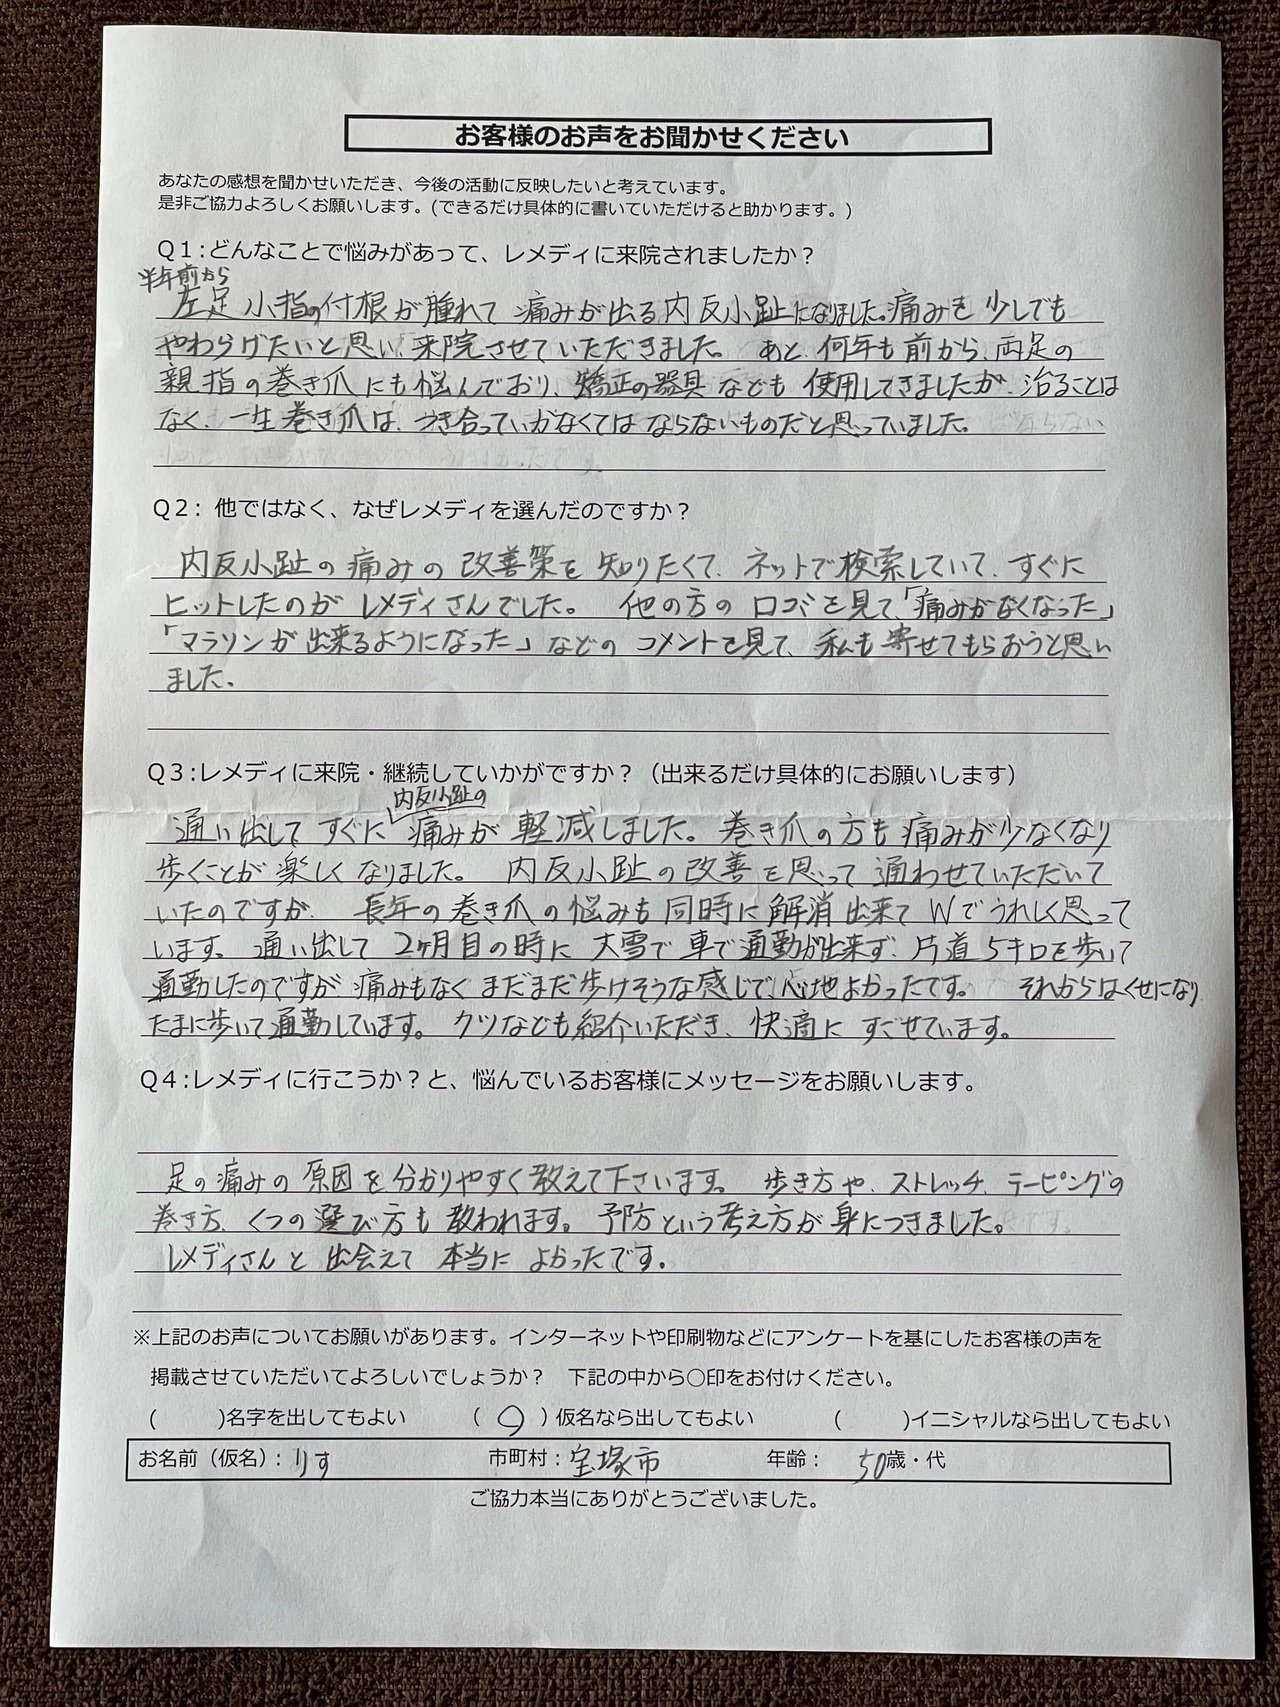 お客様のお声をお聞かせください
あなたの感想を聞かせいただき、今後の活動に反映したいと考えています。
是非ご協力よろしくお願いします。(できるだけ具体的に書いていただけると助かります。)
Q1:どんなことで悩みがあって、レメディに来院されましたか？
半年前から
左足小指の付根が腫れて痛みが出る内反小趾になりました。痛みを少しでも
やわらげたいと思い、来院させていただきました。あと、何年も前から、両足の
親指の巻き爪にも悩んでおり、矯正の器具なども使用してきましたが、治ることは
なく、一生巻き爪は、つき合っていかなくてはならないものだと思っていました。
Q2: 他ではなく、なぜレメディを選んだのですか？
内反小趾の痛みの改善策を知りたくて、ネットで検索していて、すぐに
ヒットしたのがレメディさんでした。他の方の口コミを見て「痛みがなくなった」
「マラソンが出来るようになった」などのコメントを見て、私も寄せてもらおうと思い
ました。
Q3:レメディに来院・継続していかがですか？（出来るだけ具体的にお願いします）
内反小趾の
通い出してすぐに痛みが軽減しました。巻き爪の方も痛みが少なくなり
歩くことが楽しくなりました。内反小趾の改善を思って通わせていただいて
いたのですが、長年の巻き爪の悩みも同時に解消出来てWでうれしく思って
います。通い出して2ヶ月目の時に大雪で車で通勤が出来ず、片道5キロを歩いて
通勤したのですが、痛みもなくまだまだ歩けそうな感じで、心地よかったです。それからはくせになり
たまに歩いて通勤しています。クツなども紹介いただき、快適にすごせています。
Q4:レメディに行こうか？と、悩んでいるお客様にメッセージをお願いします。
足の痛みの原因を分かりやすく教えて下さいます。歩き方や、ストレッチ、テーピングの
巻き方、くつの選び方も教われます。予防という考え方が身につきました。
レメディさんと出会えて本当によかったです。
※上記のお声についてお願いがあります。インターネットや印刷物などにアンケートを基にしたお客様の声を
掲載させていただいてよろしいでしょうか？　下記の中から○印をお付けください。
(　　)名字を出してもよい　(○)仮名なら出してもよい　(　　)イニシャルなら出してもよい
お名前（仮名）: りす　市町村：宝塚市　年齢：50歳・代
ご協力本当にありがとうございました。